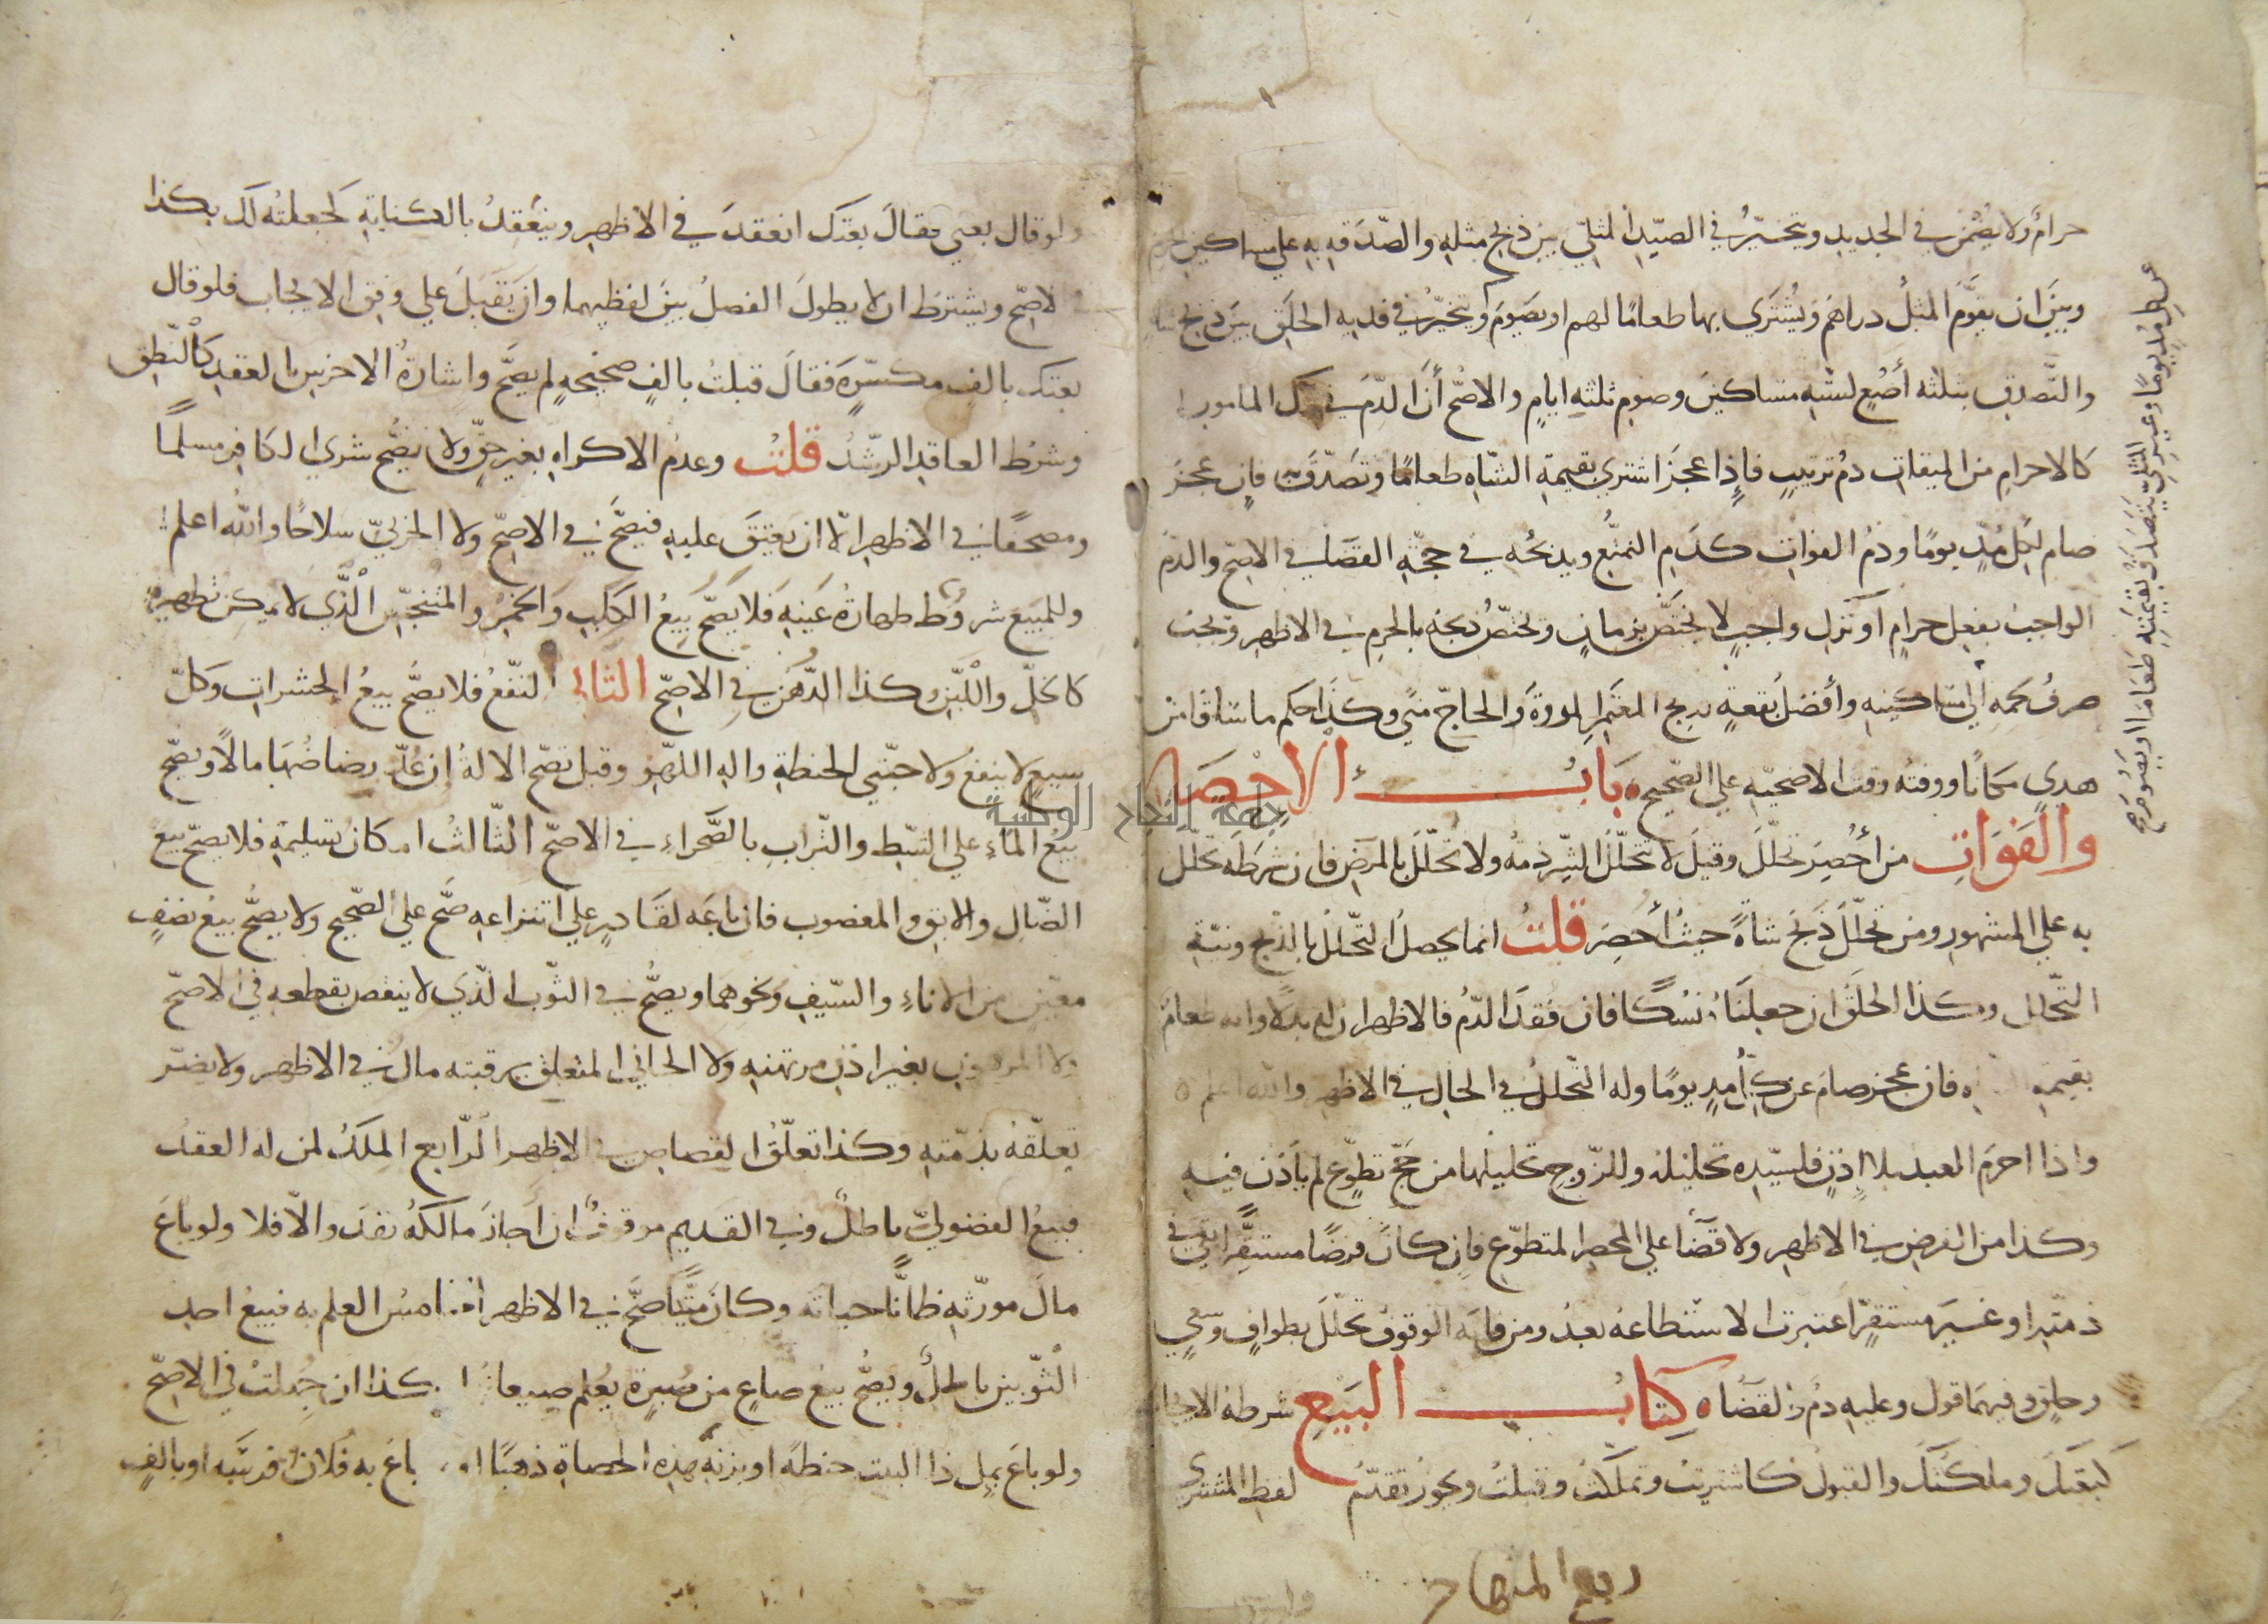 حرام ولا يضمن في الجديد ويتخير في الصيد المثلي بين ذبح مثله والصدقة به على مساكين الحرم
وبين ان يقوم المثل دراهم ويشتري بها طعاما لهم او يصوم ويتخير في فدية الحلق بين ذبح شاة
والتصدق بثلثة أصع لستة مساكين وصوم ثلثة ايام والاصح أن الدم في ترك المامور
كالاحرام من الميقات دم ترتيب فإذا عجز اشترى بقيمة الشاه طعاما وتصدق به فإن عجز
صام لكل مد يوما ودم الفوات كدم التمتع ويذبحه في حجة القضا في الاصح والدم
الواجب بفعل حرام او ترك واجب لا يختص بزمان ويختص ذبحه بالحرم في الاظهر ويجب
صرف لحمه الى مساكينه وأفضل بقعة لذبح المعتمر المروة والحاج منى وكذا حكم ما ساقا من
هدي مكانا ووقته وقت الاضحية على الصحيح باب الاحصار
والفوات من أحصر تحلل وقيل لا تتحلل الشرذمة ولا تحلل بالمرض فان شرطه تحلل
به على المشهور ومن تحلل ذبح شاة حيث أحصر قلت انما يحصل التحلل بالذبح ونية
التحلل وكذا الحلق ان جعلناه نسكا فان فقد الدم فالاظهر ان له بدلا وانه طعام
بقيمة فان عجز صام عن كل مد يوما وله التحلل في الحال في الاظهر والله اعلم
واذا احرم العبد بلا اذن فلسيده تحليله وللزوج تحليلها من حج تطوع لم ياذن فيه
وكذا من الفرض في الاظهر ولا قضا على المحصر المتطوع فان كان فرضا مستقرا بقي في
ذمته او غير مستقر اعتبرت الاستطاعة بعد ومن فاته الوقوف تحلل بطواف وسعي
وحلق وفيهما قول وعليه دم والقضاء كتاب البيع شرطه الايجاب
كبعتك وملكتك والقبول كاشتريت وتملكت وقبلت ويجوز تقدم لفظ المشتري
ربع المنهاج
عن كل مد يوما وغير المثلي يتصدق بقيمته طعاما او يصوم صح
ولو قال بعني فقال بعتك انعقد في الاظهر وينعقد بالكناية كجعلته لك بكذا
في الاصح ويشترط ان لا يطول الفصل بين لفظيهما وان يقبل على وفق الايجاب فلو قال
بعتك بالف مكسرة فقال قبلت بالف صحيحة لم يصح واشارة الاخرس بالعقد كالنطق
وشرط العاقد الرشد قلت وعدم الاكراه بغير حق ولا يصح شرى الكافر مسلما
ومصحفا في الاظهر الا ان يعتق عليه فيصح في الاصح ولا الحربي سلاحا والله اعلم
وللمبيع شروط طهارة عينه فلا يصح بيع الكلب والخمر والمتنجس الذي لا يمكن تطهيره
كالخل واللبن وكذا الدهن في الاصح الثاني النفع فلا يصح بيع الحشرات وكل
سبع لا ينفع ولا حبتي الحنطة والة اللهو وقيل تصح الالة إن عد رضاضها مالا ويصح
بيع الماء على الشط والتراب بالصحراء في الاصح الثالث امكان تسليمه فلا يصح بيع
الضال والابق والمغصوب فان باعه لقادر على انتزاعه صح على الصحيح ولا يصح بيع نصف
معين من الاناء والسيف ونحوهما ويصح في الثوب الذي لا ينقص بقطعه في الاصح
ولا المرهون بغير اذن مرتهنه ولا الجاني المتعلق برقبته مال في الاظهر ولا يضر
تعلقه بذمته وكذا تعلق القصاص في الاظهر الرابع الملك لمن له العقد
فبيع الفضولي باطل وفي القديم موقوف ان اجاز مالكه نفذ والا فلا ولو باع
مال مورثه ظانا حياته وكان ميتا صح في الاظهر الخامس العلم به فبيع احد
الثوبين باطل ويصح بيع صاع من صبرة يعلم صيعانها وكذا ان جهلت في الاصح
ولو باع بمل ذا البيت حنطة او بزنة هذه الحصاة ذهبا او باع به فلان فرسه او بالف
جامعة النجاح الوطنية